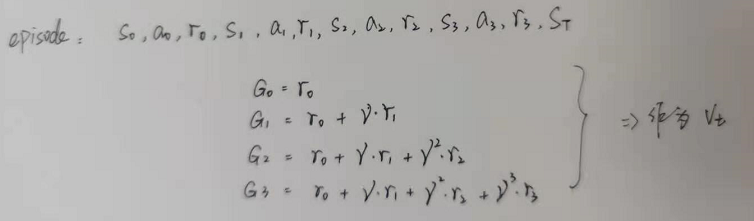 episode: S₀, a₀, r₀, S₁, a₁, r₁, S₂, a₂, r₂, S₃, a₃, r₃, S_T
G₀ = r₀
G₁ = r₀ + γ·r₁
G₂ = r₀ + γ·r₁ + γ²·r₂
G₃ = r₀ + γ·r₁ + γ²·r₂ + γ³·r₃
⇒ 作为 V_t